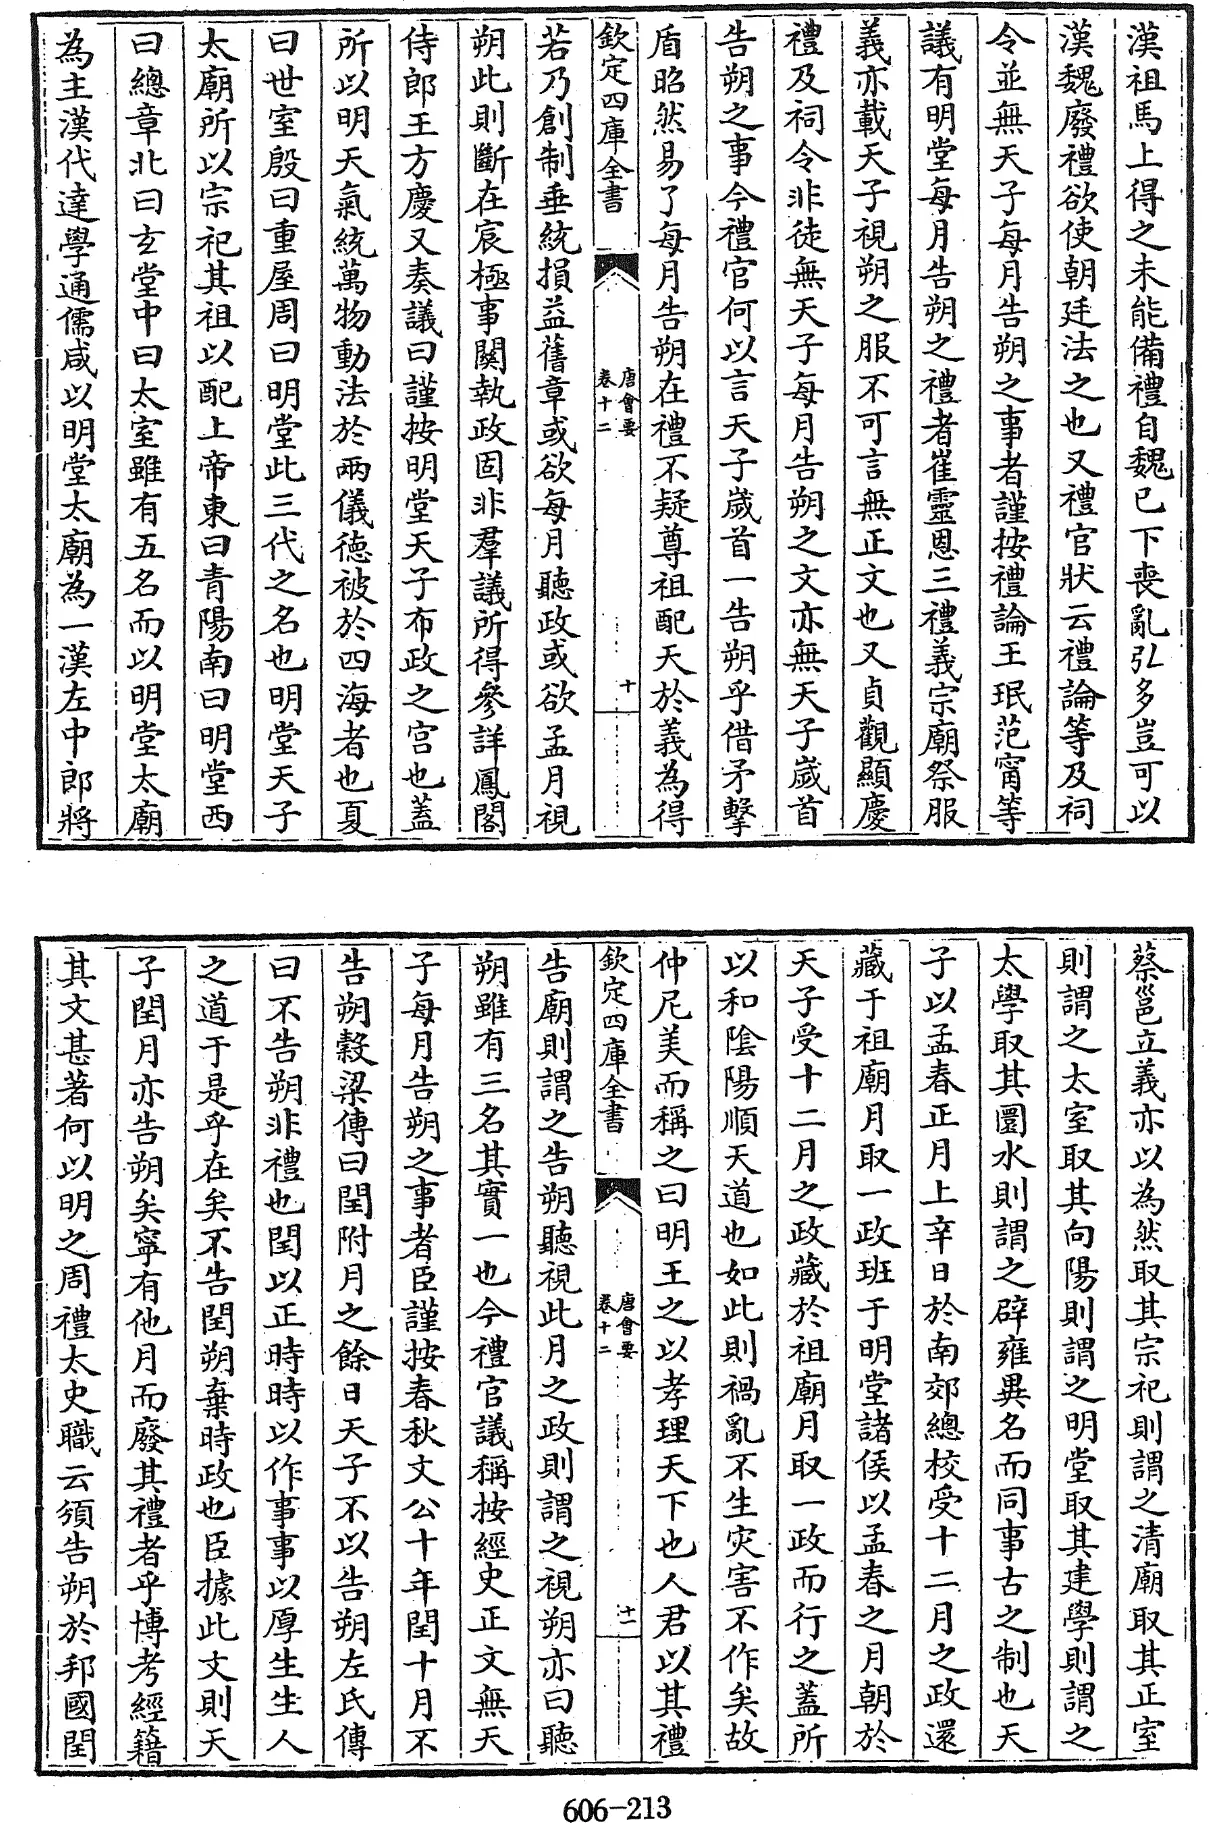 漢祖馬上得之未能備禮自魏已下喪亂弘多豈可以
漢魏廢禮欲使朝廷法之也又禮官狀云禮論等及祠
令並無天子每月告朔之事者謹按禮論王珉范甯等
議有明堂每月告朔之禮者崔靈恩三禮義宗廟祭服
義亦載天子視朔之服不可言無正文也又貞觀顯慶
禮及祠令非徒無天子每月告朔之文亦無天子歲首
告朔之事今禮官何以言天子歲首一告朔乎借矛擊
盾昭然易了每月告朔在禮不疑尊祖配天於義為得
欽定四庫全書
唐會要
卷十二
十
若乃創制垂統損益舊章或欲每月聽政或欲孟月視
朔此則斷在宸極事闗執政固非羣議所得參詳鳳閣
侍郎王方慶又奏議曰謹按明堂天子布政之宫也蓋
所以明天氣統萬物動法於兩儀德被於四海者也夏
曰世室殷曰重屋周曰明堂此三代之名也明堂天子
太廟所以宗祀其祖以配上帝東曰青陽南曰明堂西
曰總章北曰玄堂中曰太室雖有五名而以明堂太廟
為主漢代達學通儒咸以明堂太廟為一漢左中郎將
蔡邕立義亦以為然取其宗祀則謂之清廟取其正室
則謂之太室取其向陽則謂之明堂取其建學則謂之
太學取其圜水則謂之辟雍異名而同事古之制也天
子以孟春正月上辛日於南郊總校受十二月之政還
藏于祖廟月取一政班于明堂諸侯以孟春之月朝於
天子受十二月之政藏於祖廟月取一政而行之蓋所
以和陰陽順天道也如此則禍亂不生災害不作矣故
仲尼美而稱之曰明王之以孝理天下也人君以其禮
欽定四庫全書
唐會要
卷十二
十一
告廟則謂之告朔聽視此月之政則謂之視朔亦曰聽
朔雖有三名其實一也今禮官議稱按經史正文無天
子每月告朔之事者臣謹按春秋文公十年閏十月不
告朔穀梁傳曰閏附月之餘日天子不以告朔左氏傳
曰不告朔非禮也閏以正時時以作事事以厚生生人
之道于是乎在矣不告閏朔棄時政也臣據此文則天
子閏月亦告朔矣寧有他月而廢其禮者乎博考經籍
其文甚著何以明之周禮太史職云頒告朔於邦國閏
606-213